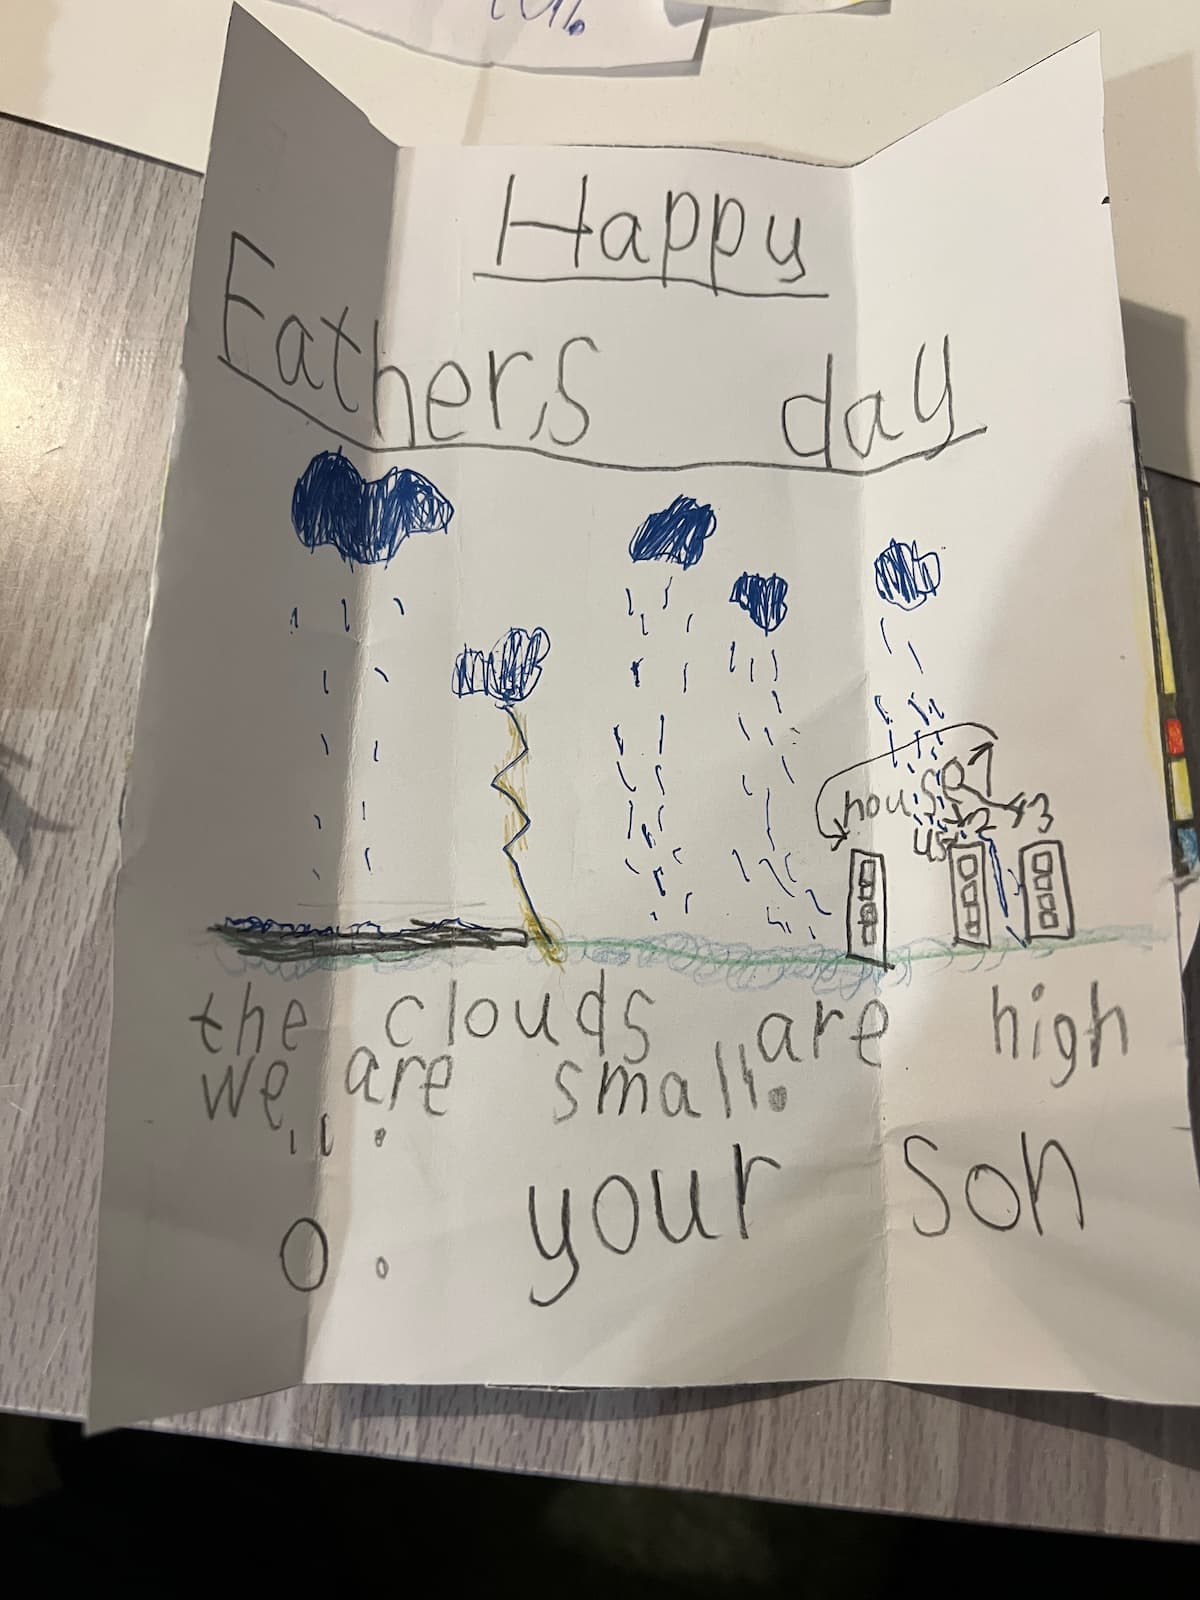 Happy
Fathers day
house 1
us 2 3
the clouds are high
we are small.
your son